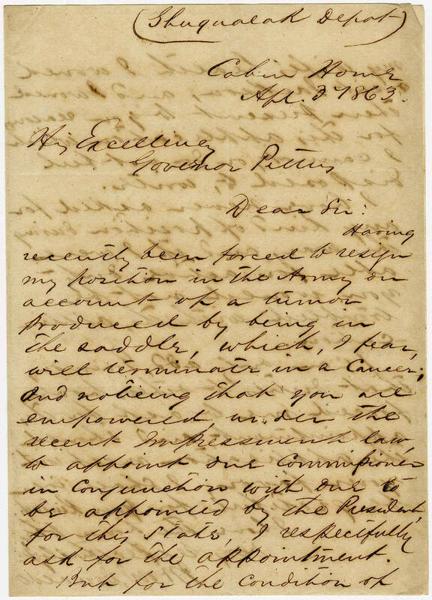 (Shuqualak Depot)
Cabin Home
Apl. 3 1863.
His Excellency
Governor Pettus
Dear Sir:
Having
recently been forced to resign
my position in the Army on
account of a tumor
produced by being in
the saddle, which, I fear,
will terminate in a Cancer;
and noticing that you are
empowered under the
recent Impressment law,
to appoint one Commissioner
in conjunction with one to
be appointed by the President,
for this State, I respectfully
ask for the appointment.
But for the condition of